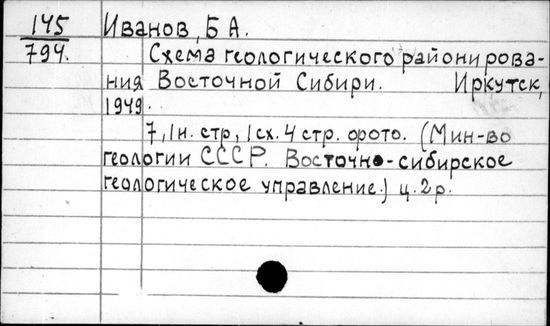 145
794.
Иванов, Б А.
Схема геологического районирова-
ния Восточной Сибири. Иркутск,
1949.
7, 1 н. стр, 1 сх. 4 стр. фото. (Мин-во
геологии СССР. Восточно-сибирское
геологическое управление.) ц. 2 р.